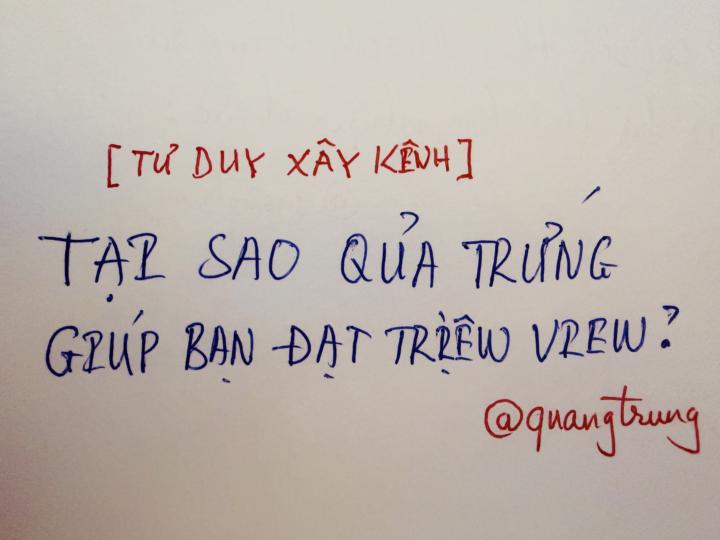 [TƯ DUY XÂY KÊNH]
TẠI SAO QUẢ TRỨNG
GIÚP BẠN ĐẠT TRIỆU VIEW?
@quangtrung